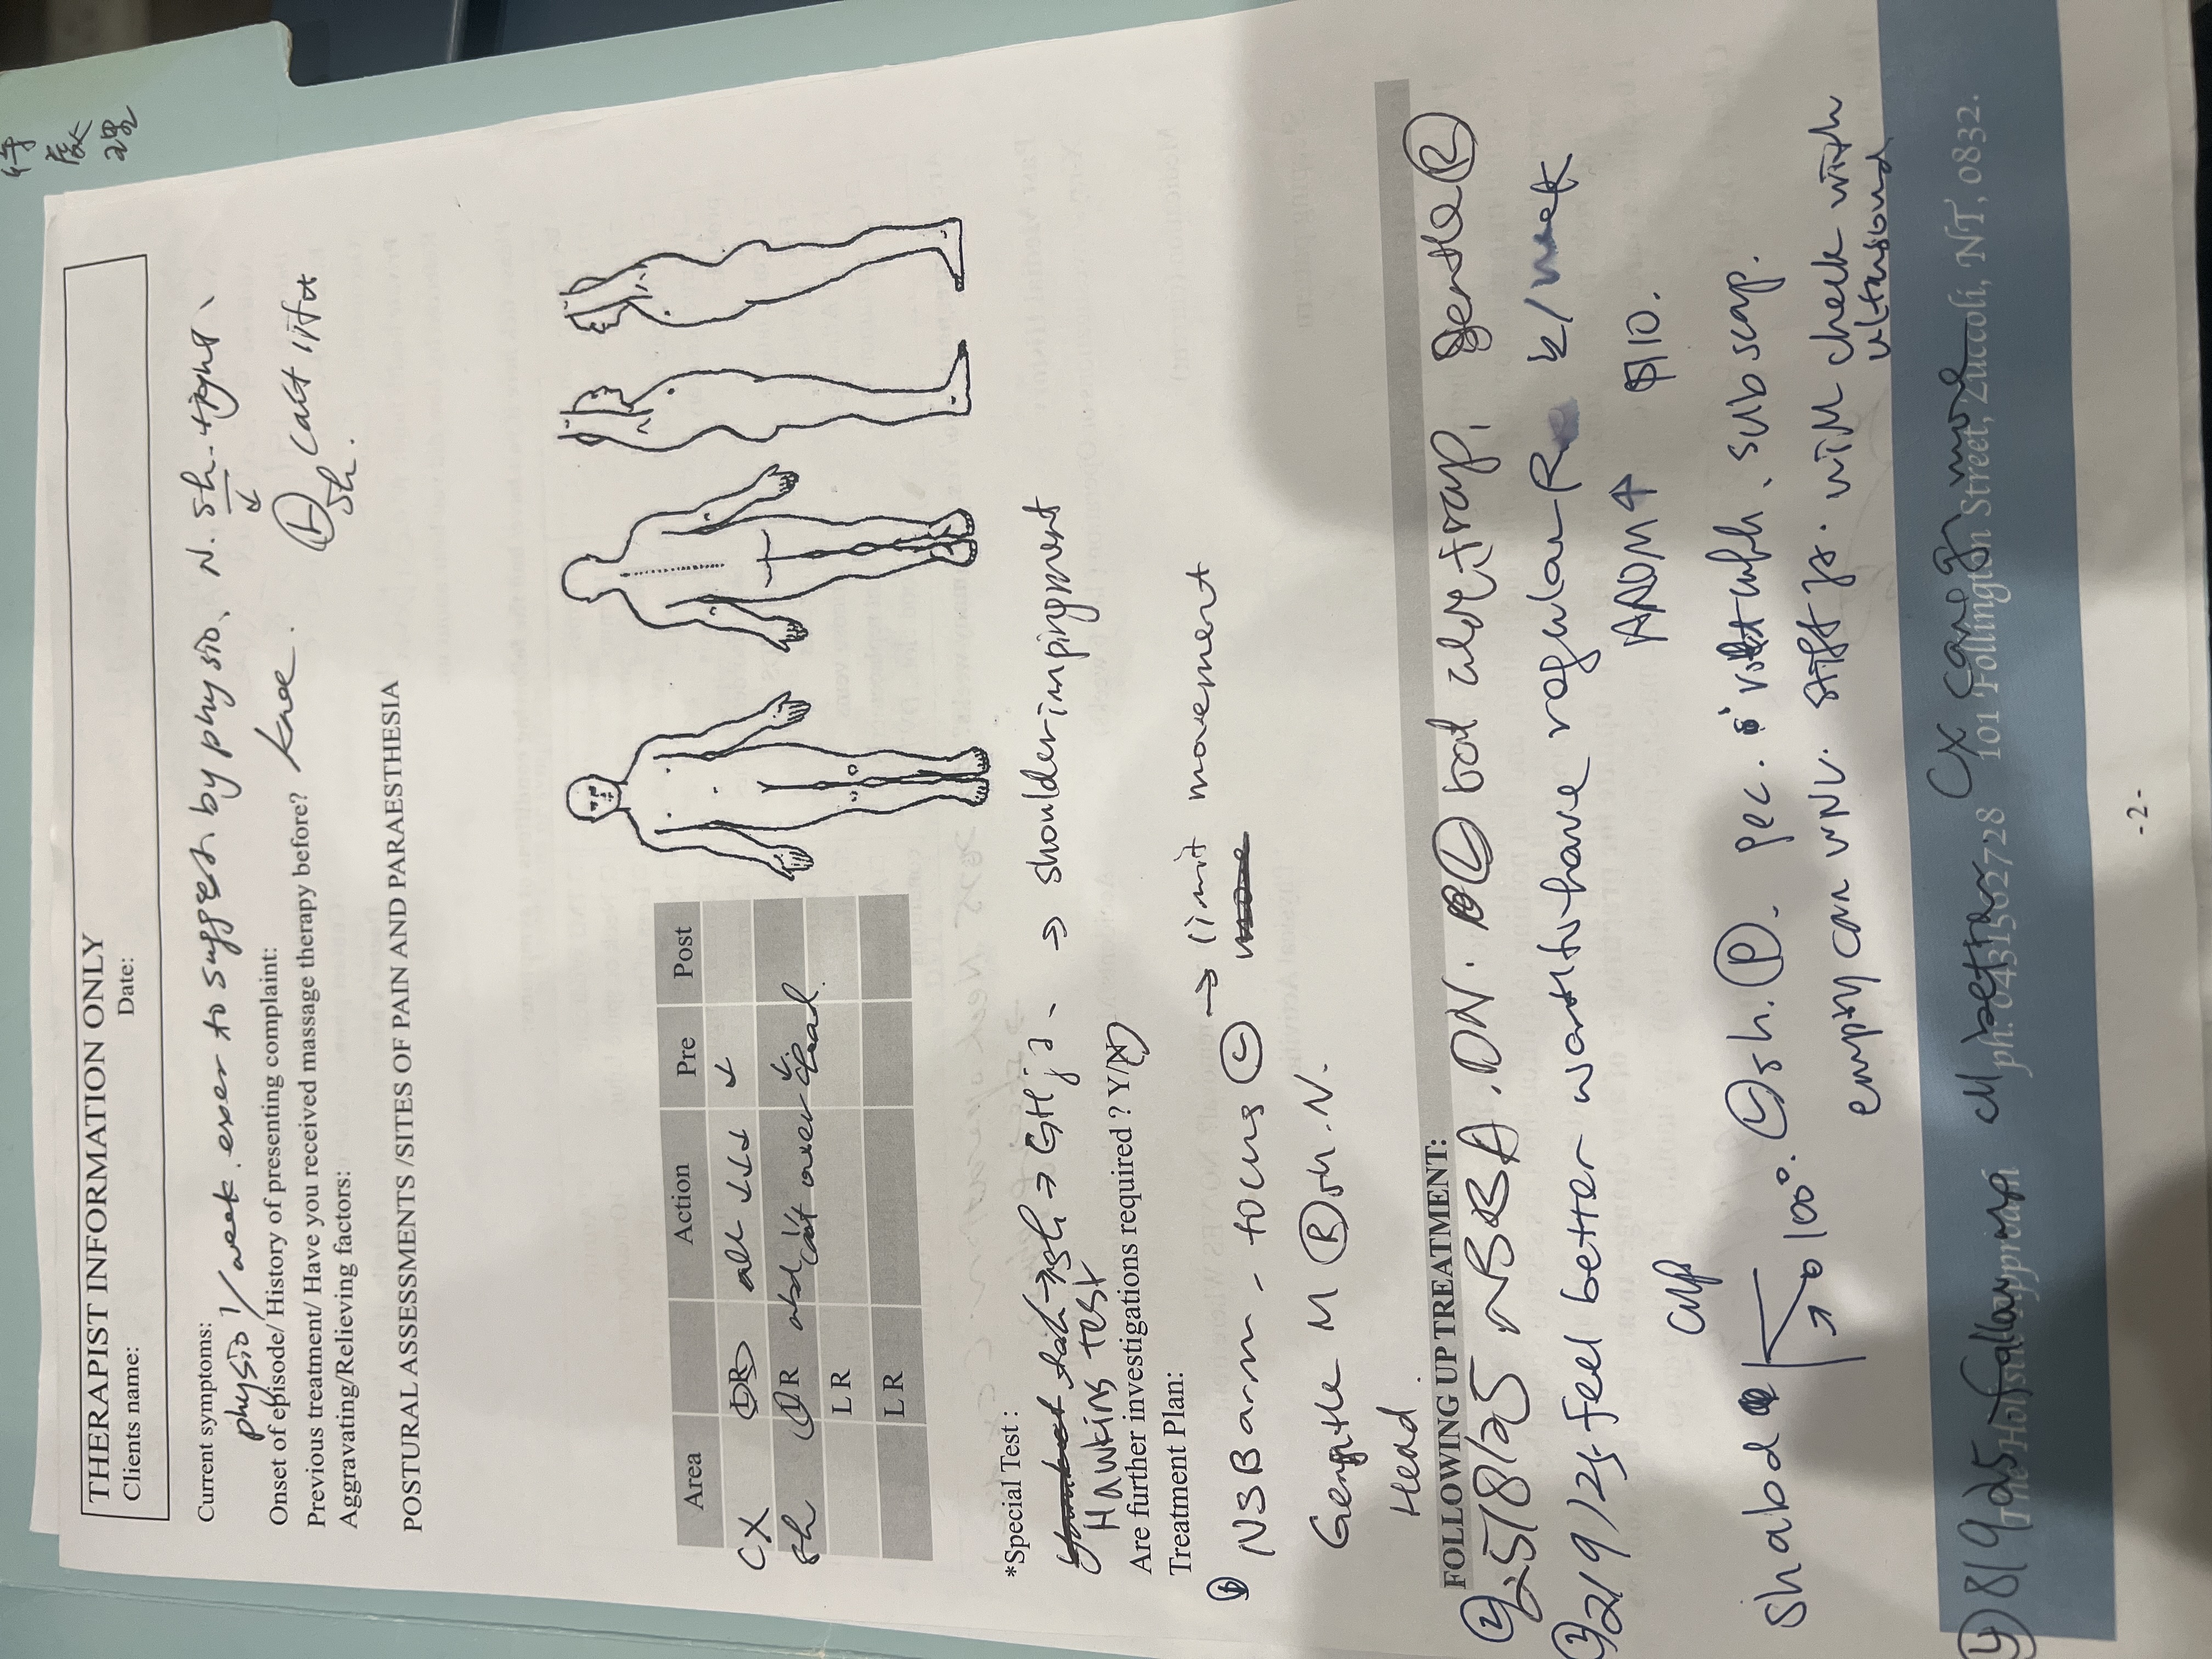 THERAPIST INFORMATION ONLY
Clients name: Date:
Current symptoms:
physio 1/week. exer to suggest by physio, N. sh. tight,
Onset of episode/ History of presenting complaint:
Previous treatment/ Have you received massage therapy before?
Ⓛ sh. can't lift
Aggravating/Relieving factors:
POSTURAL ASSESSMENTS /SITES OF PAIN AND PARAESTHESIA
Area Action Pre Post
CX L R all ↓↓↓ ↓
sh L R abd can't over head.
L R
L R
*Special Test :
→ GHjt、 → shoulder impingment
Hawkins test
Are further investigations required ? Y/N
Treatment Plan:
① NSB arm - focus Ⓛ → limit movement
Gengtle M Ⓡ sh. N.
Head.
FOLLOWING UP TREATMENT:
② 25/8/25 NSBA. DN. Ⓛ trap, Gentle Ⓡ
③ 2/9/25 feel better want to have regular R /week
cup AROM↑ $110.
Sh abd 100°. Ⓛ sh. Ⓟ. pec. subscap.
empty can WNL. stiff js. will check with
ultrasound
④ 8/9/25 follow up better CX more
The Holistic Approach ph. 0431562728 101 Follington Street, Zuccoli, NT, 0832.
- 2 -